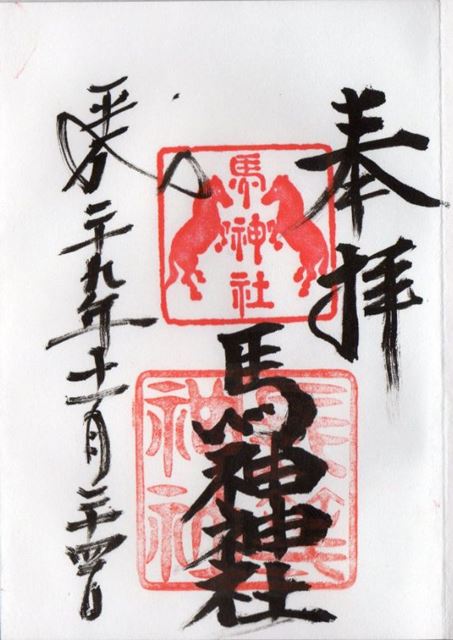 奉拝
馬神社
馬神神社
長等神社
平成二十九年十一月二十四日